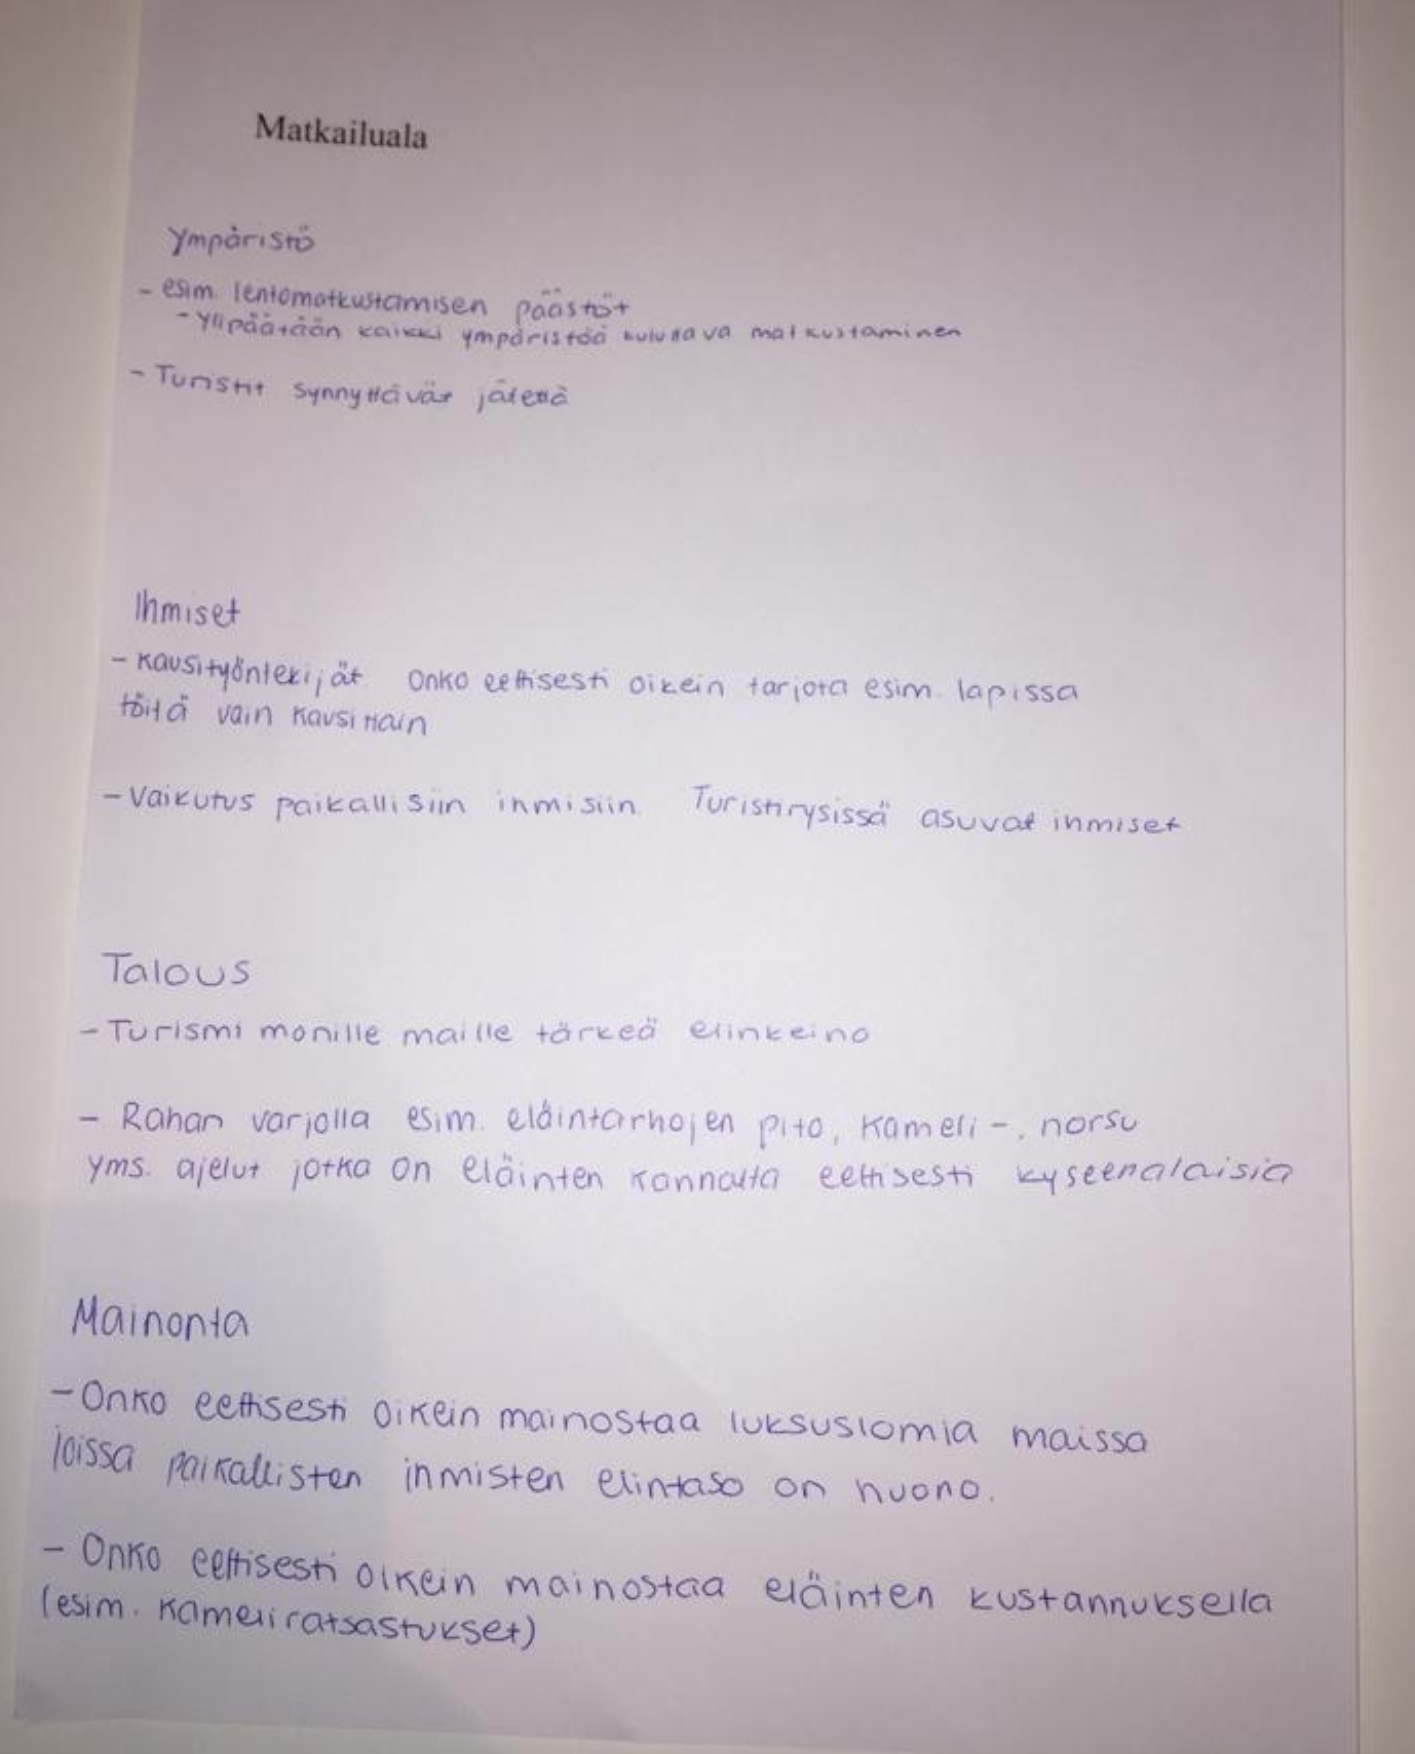 Matkailuala
Ympäristö
- esim. lentomatkustamisen päästöt
- Ylipäätään kaikki ympäristöä kuluttava matkustaminen
- Turistit synnyttävät jätettä
Ihmiset
- Kausityöntekijät. Onko eettisesti oikein tarjota esim. lapissa
töitä vain kausittain
- Vaikutus paikallisiin ihmisiin. Turistirysissä asuvat ihmiset
Talous
- Turismi monille maille tärkeä elinkeino
- Rahan varjolla esim. eläintarhojen pito, kameli-, norsu
yms. ajelut jotka on eläinten kannalta eettisesti kyseenalaisia
Mainonta
- Onko eettisesti oikein mainostaa luksuslomia maissa
joissa paikallisten ihmisten elintaso on huono.
- Onko eettisesti oikein mainostaa eläinten kustannuksella
(esim. kameliratsastukset)